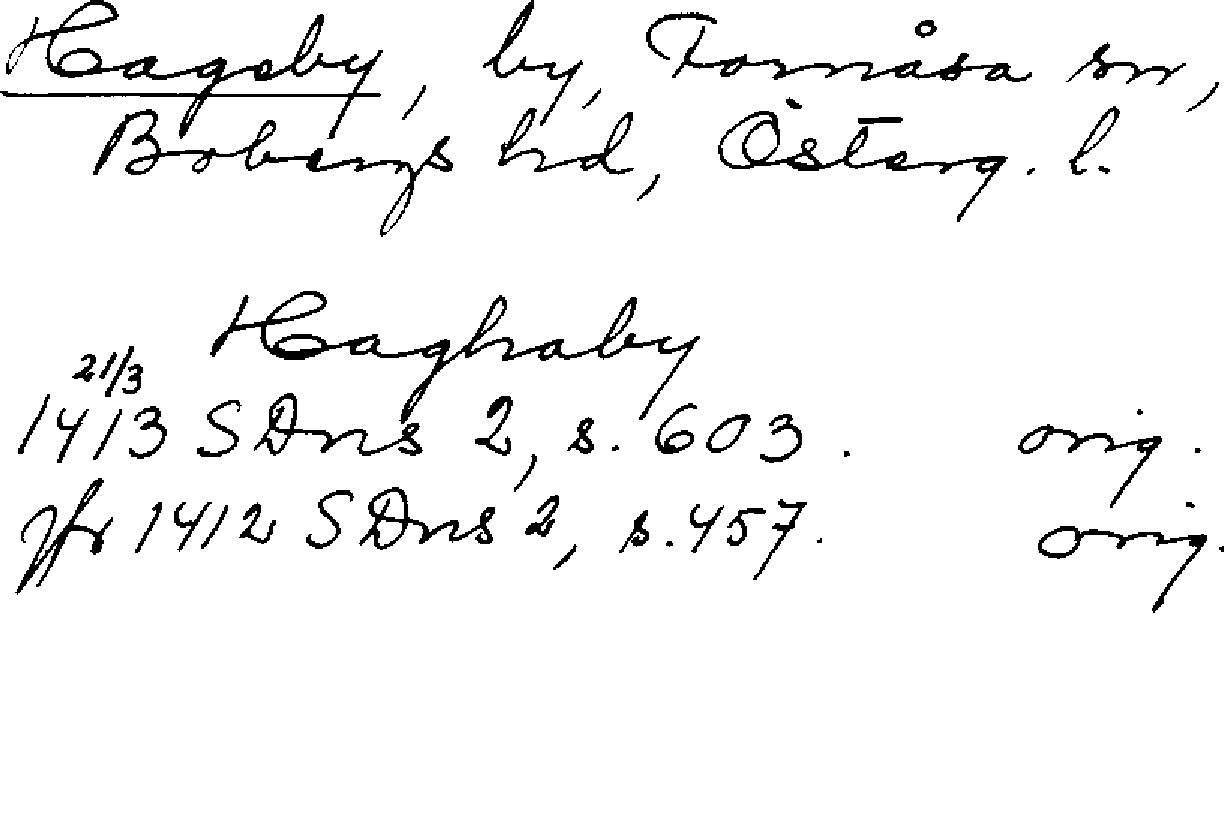 Hageby, by, Fornåsa sn,
Bobergs hd, Österg. l.
Haghaby
21/3
1413 SDns 2, s. 603. orig.
jfr 1412 SDns 2, s. 457. orig.